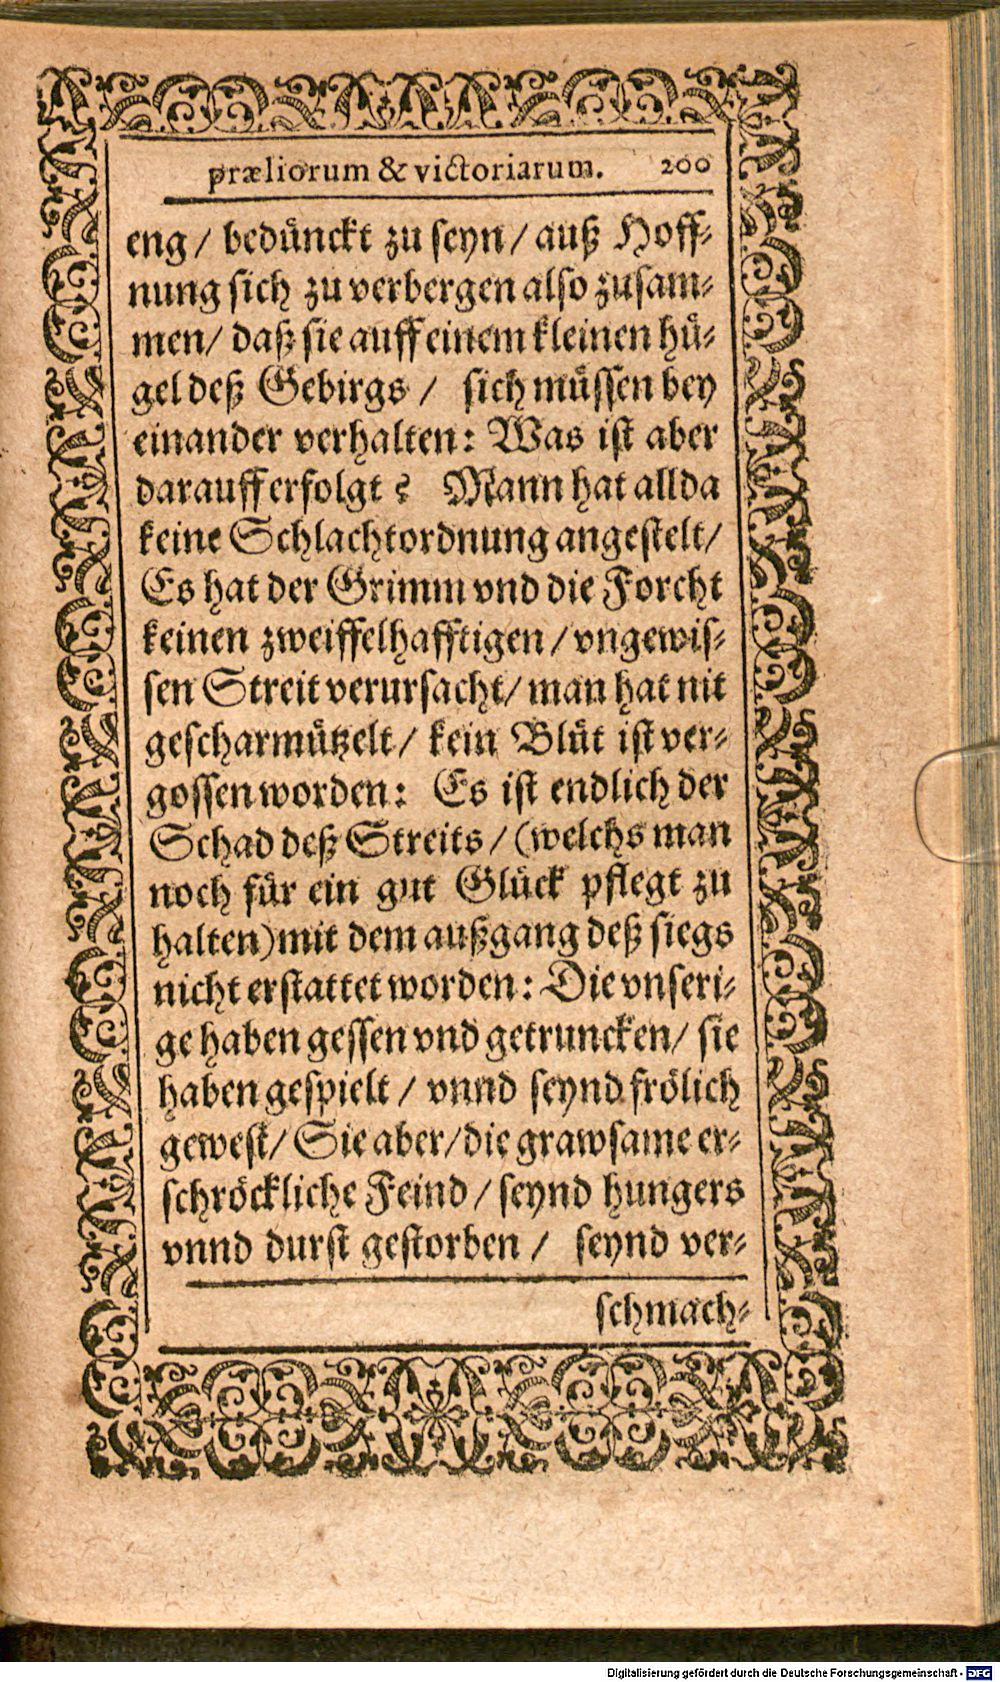 præliorum & victoriarum. 200
eng / bedünckt zu seyn / auß Hoff⸗
nung sich zu verbergen also zusam⸗
men / daß sie auff einem kleinen hü⸗
gel deß Gebirgs / sich müssen bey
einander verhalten: Was ist aber
darauff erfolgt? Mann hat allda
keine Schlachtordnung angestelt /
Es hat der Grimm vnd die Forcht
keinen zweiffelhafftigen / vngewis⸗
sen Streit verursacht / man hat nit
gescharmützelt / kein Blůt ist ver⸗
gossen worden: Es ist endlich der
Schad deß Streits / (welchs man
noch für ein gut Glück pflegt zu
halten) mit dem außgang deß siegs
nicht erstattet worden: Die vnseri⸗
ge haben gessen vnd getruncken / sie
haben gespielt / vnnd seynd frölich
gewest / Sie aber / die grawsame er⸗
schröckliche Feind / seynd hungers
vnnd durst gestorben / seynd ver⸗
schmach⸗
Digitalisierung gefördert durch die Deutsche Forschungsgemeinschaft - DFG